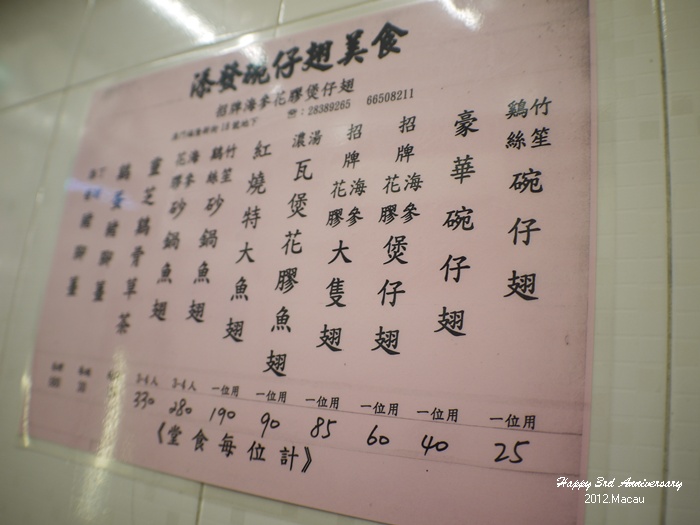 添發碗仔翅美食
招牌海參花膠煲仔翅
☎：28389265 66508211
竹笙鷄絲碗仔翅 一位用 25
豪華碗仔翅 一位用 40
招牌海參花膠煲仔翅 一位用 60
招牌海參花膠大隻翅 一位用 85
濃湯瓦煲花膠魚翅 一位用 90
紅燒特大魚翅 一位用 190
竹笙鷄絲砂鍋魚翅 3-4人 280
海參花膠砂鍋魚翅 3-4人 330
靈芝鷄骨草茶
鷄蛋豬脚薑
豬脚薑
《堂食每位計》
Happy 3rd Anniversary
2012.Macau